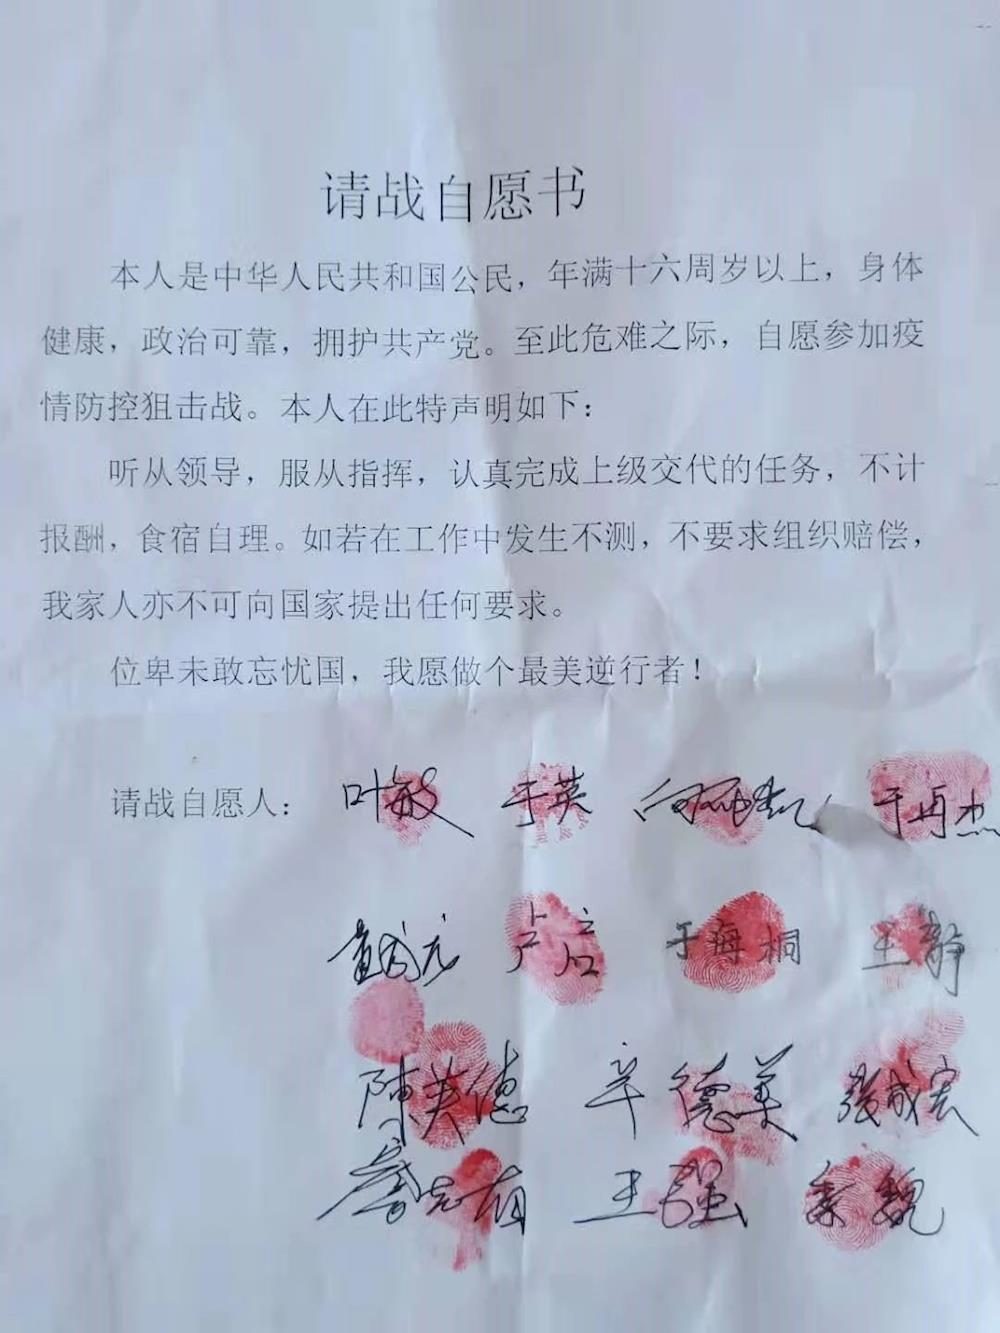 请战自愿书
本人是中华人民共和国公民，年满十六周岁以上，身体
健康，政治可靠，拥护共产党。至此危难之际，自愿参加疫
情防控狙击战。本人在此特声明如下：
听从领导，服从指挥，认真完成上级交代的任务，不计
报酬，食宿自理。如若在工作中发生不测，不要求组织赔偿，
我家人亦不可向国家提出任何要求。
位卑未敢忘忧国，我愿做个最美逆行者！
请战自愿人： 叶敏 于英 于再杰
于海桐 王静
陈英德 辛德美 张成宏
王强 秦巍